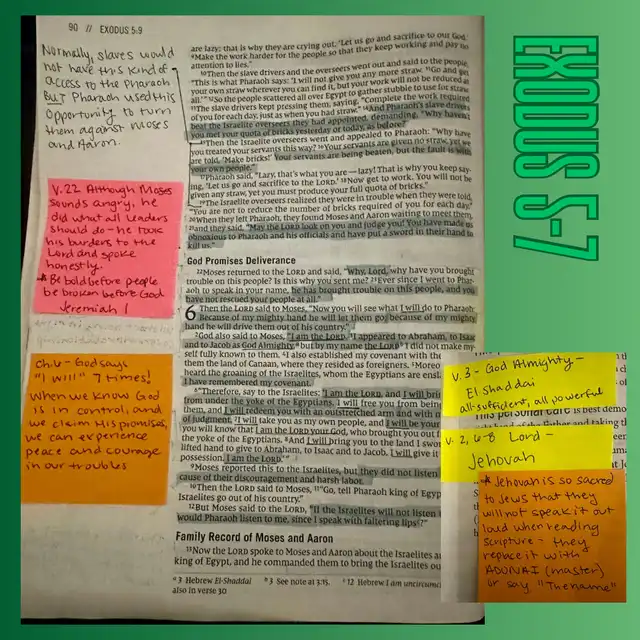 90 // EXODUS 5:9
Normally, slaves would
not have this kind of
access to the Pharaoh
BUT Pharaoh used this
opportunity to turn
them against Moses
and Aaron.
V.22 Although Moses
sounds angry, he
did what all leaders
should do - he took
his burders to the
Lord and spoke
honestly.
* Be bold before people
be broken before God
Jeremiah 1
Ch.6 - God says
"I will" 7 times!
When we know God
is in control, and
we claim His promises,
we can experience
peace and courage
in our troubles
are lazy; that is why they are crying out, 'Let us go and sacrifice to our God.'
9Make the work harder for the people so that they keep working and pay no
attention to lies."
10Then the slave drivers and the overseers went out and said to the people,
"This is what Pharaoh says: 'I will not give you any more straw. 11Go and get
your own straw wherever you can find it, but your work will not be reduced at
all.'" 12So the people scattered all over Egypt to gather stubble to use for straw.
13The slave drivers kept pressing them, saying, "Complete the work required
of you for each day, just as when you had straw." 14And Pharaoh's slave drivers
beat the Israelite overseers they had appointed, demanding, "Why haven't
you met your quota of bricks yesterday or today, as before?"
15Then the Israelite overseers went and appealed to Pharaoh: "Why have
you treated your servants this way? 16Your servants are given no straw, yet we
are told, 'Make bricks!' Your servants are being beaten, but the fault is with
your own people."
17Pharaoh said, "Lazy, that's what you are—lazy! That is why you keep say-
ing, 'Let us go and sacrifice to the LORD.' 18Now get to work. You will not be
given any straw, yet you must produce your full quota of bricks."
19The Israelite overseers realized they were in trouble when they were told,
"You are not to reduce the number of bricks required of you for each day."
20When they left Pharaoh, they found Moses and Aaron waiting to meet them,
21and they said, "May the LORD look on you and judge you! You have made us
obnoxious to Pharaoh and his officials and have put a sword in their hand to
kill us."
God Promises Deliverance
22Moses returned to the LORD and said, "Why, Lord, why have you brought
trouble on this people? Is this why you sent me? 23Ever since I went to Phar-
aoh to speak in your name, he has brought trouble on this people, and you
have not rescued your people at all."
6 Then the LORD said to Moses, "Now you will see what I will do to Pharaoh:
Because of my mighty hand he will let them go; because of my mighty
hand he will drive them out of his country."
2God also said to Moses, "I am the LORD. 3I appeared to Abraham, to Isaac
and to Jacob as God Almighty, but by my name the LORD I did not make my
self fully known to them. 4I also established my covenant with the
them the land of Canaan, where they resided as foreigners. 5Moreo
heard the groaning of the Israelites, whom the Egyptians are ensl
I have remembered my covenant.
6"Therefore, say to the Israelites: 'I am the LORD, and I will brin
from under the yoke of the Egyptians. I will free you from being
them, and I will redeem you with an outstretched arm and with m
of judgment. 7I will take you as my own people, and I will be your
you will know that I am the LORD your God, who brought you out f
the yoke of the Egyptians. 8And I will bring you to the land I swor
lifted hand to give to Abraham, to Isaac and to Jacob. I will give it
possession. I am the LORD.'"
9Moses reported this to the Israelites, but they did not listen
cause of their discouragement and harsh labor.
10Then the LORD said to Moses, 11"Go, tell Pharaoh king of Egyp
Israelites go out of his country."
12But Moses said to the LORD, "If the Israelites will not listen t
would Pharaoh listen to me, since I speak with faltering lips?"
Family Record of Moses and Aaron
13Now the LORD spoke to Moses and Aaron about the Israelites a
king of Egypt, and he commanded them to bring the Israelites ou
a 3 Hebrew El-Shaddai b 3 See note at 3:15. c 12 Hebrew I am uncircumc
also in verse 30
EXODUS 5-7
V. 3 - God Almighty -
El shaddai
all-sufficient, all powerful
V. 2, 6-8 Lord -
Jehovah
* Jehovah is so sacred
to Jews that they
will not speak it out
loud when reading
Scripture - they
replace it with
ADONAI (master)
or say "The name"